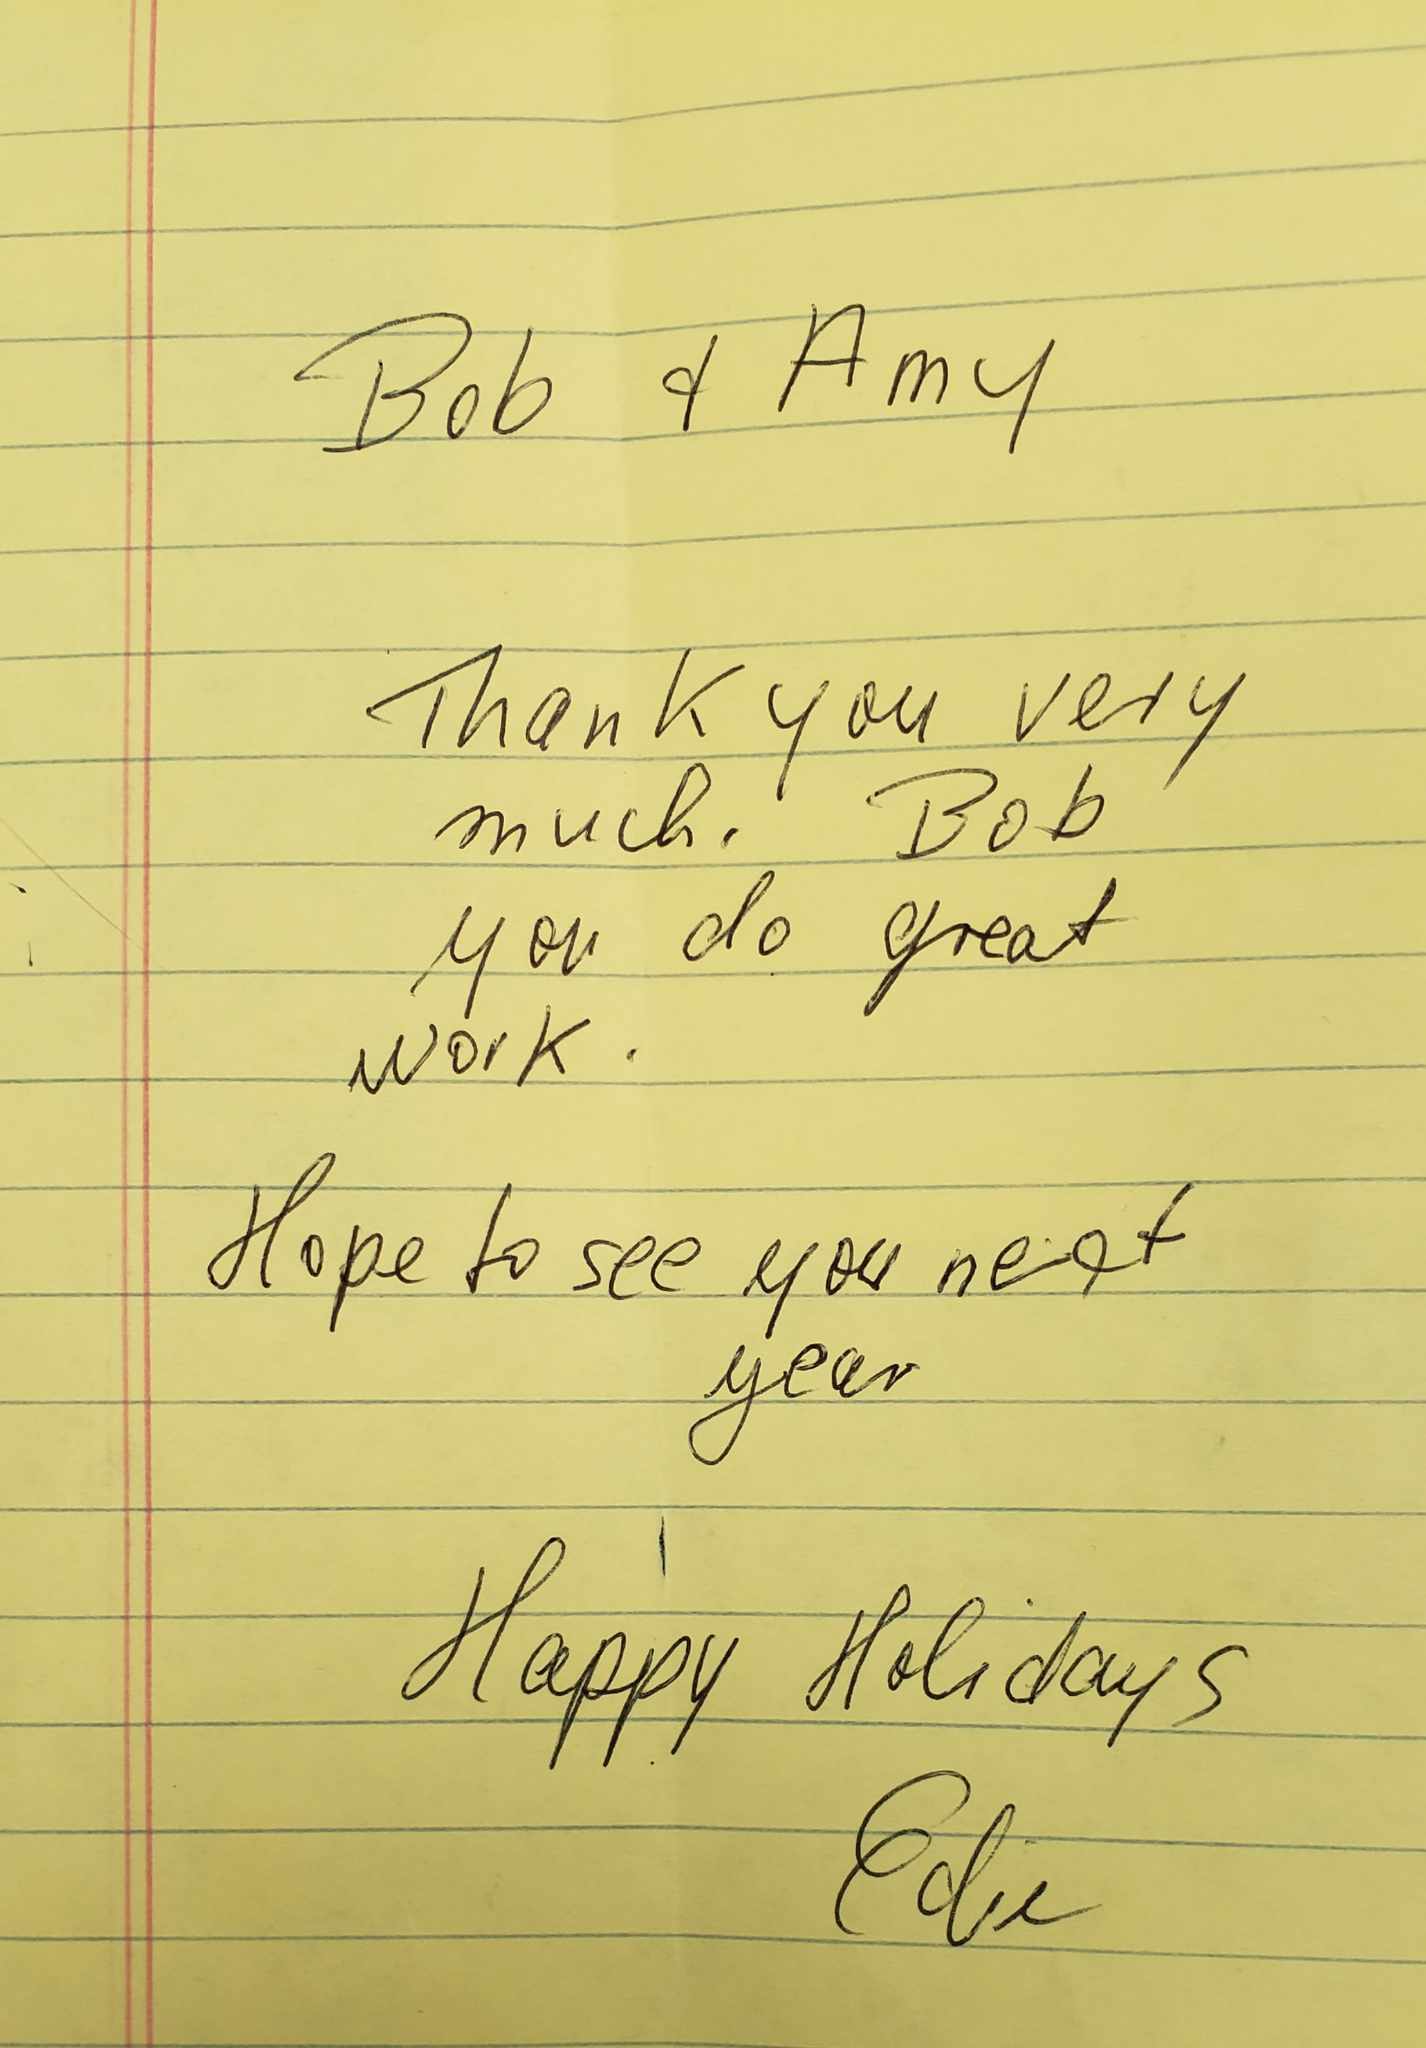 Bob & Amy
Thank you very
much. Bob
you do great
work.
Hope to see you next
year
Happy Holidays
Edie